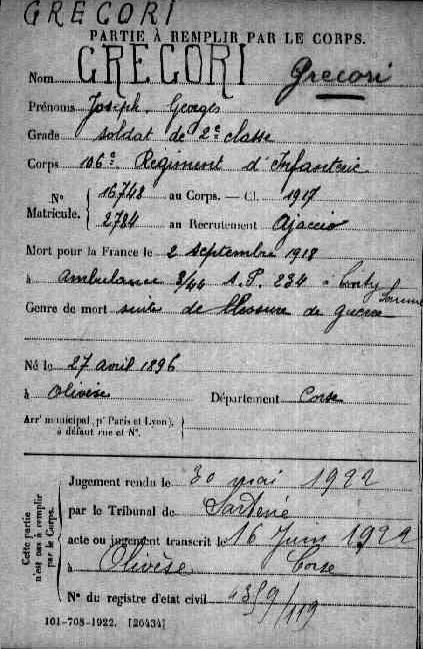 GRECORI
PARTIE À REMPLIR PAR LE CORPS.
GRECORI Grecori
Nom
Prénoms Joseph, Georges
Grade soldat de 2e classe
Corps 106e Régiment d'Infanterie
N° Matricule. 16748 au Corps. — Cl. 1917
2784 au Recrutement Ajaccio
Mort pour la France le 2 septembre 1918
à ambulance 3/44 S.P. 234 à Conty Somme
Genre de mort suite de blessure de guerre
Né le 27 avril 1896
à Olivèse Département Corse
Arrt municipal (pr Paris et Lyon),
à défaut rue et N°.
Cette partie n'est pas à remplir par le Corps.
Jugement rendu le 30 mai 1922
par le Tribunal de Sartène
acte ou jugement transcrit le 16 Juin 1922
à Olivèse Corse
N° du registre d'état civil /119
101-708-1922. [26434]